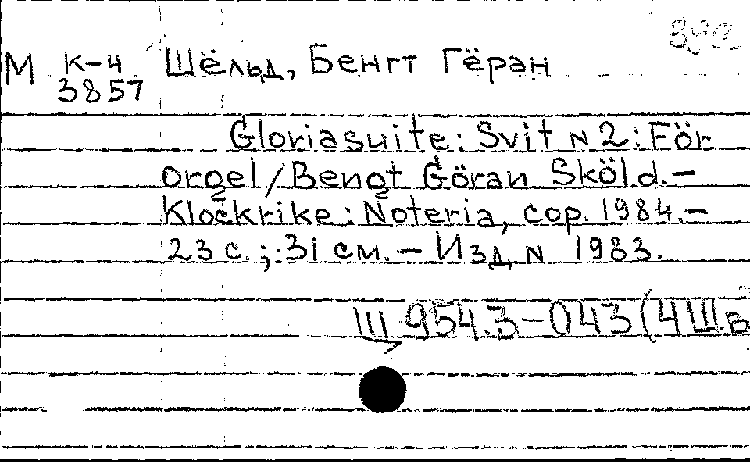 М К-4 Шёльд, Бенгт Гёран
3857
Gloriasuite: Svit N 2: För
orgel/Bengt Göran Sköld.—
Klockrike: Noteria, cop. 1984.—
23 с.; 31 см. — Изд. N 1983.
Ш 954.3-043(4Ш.в